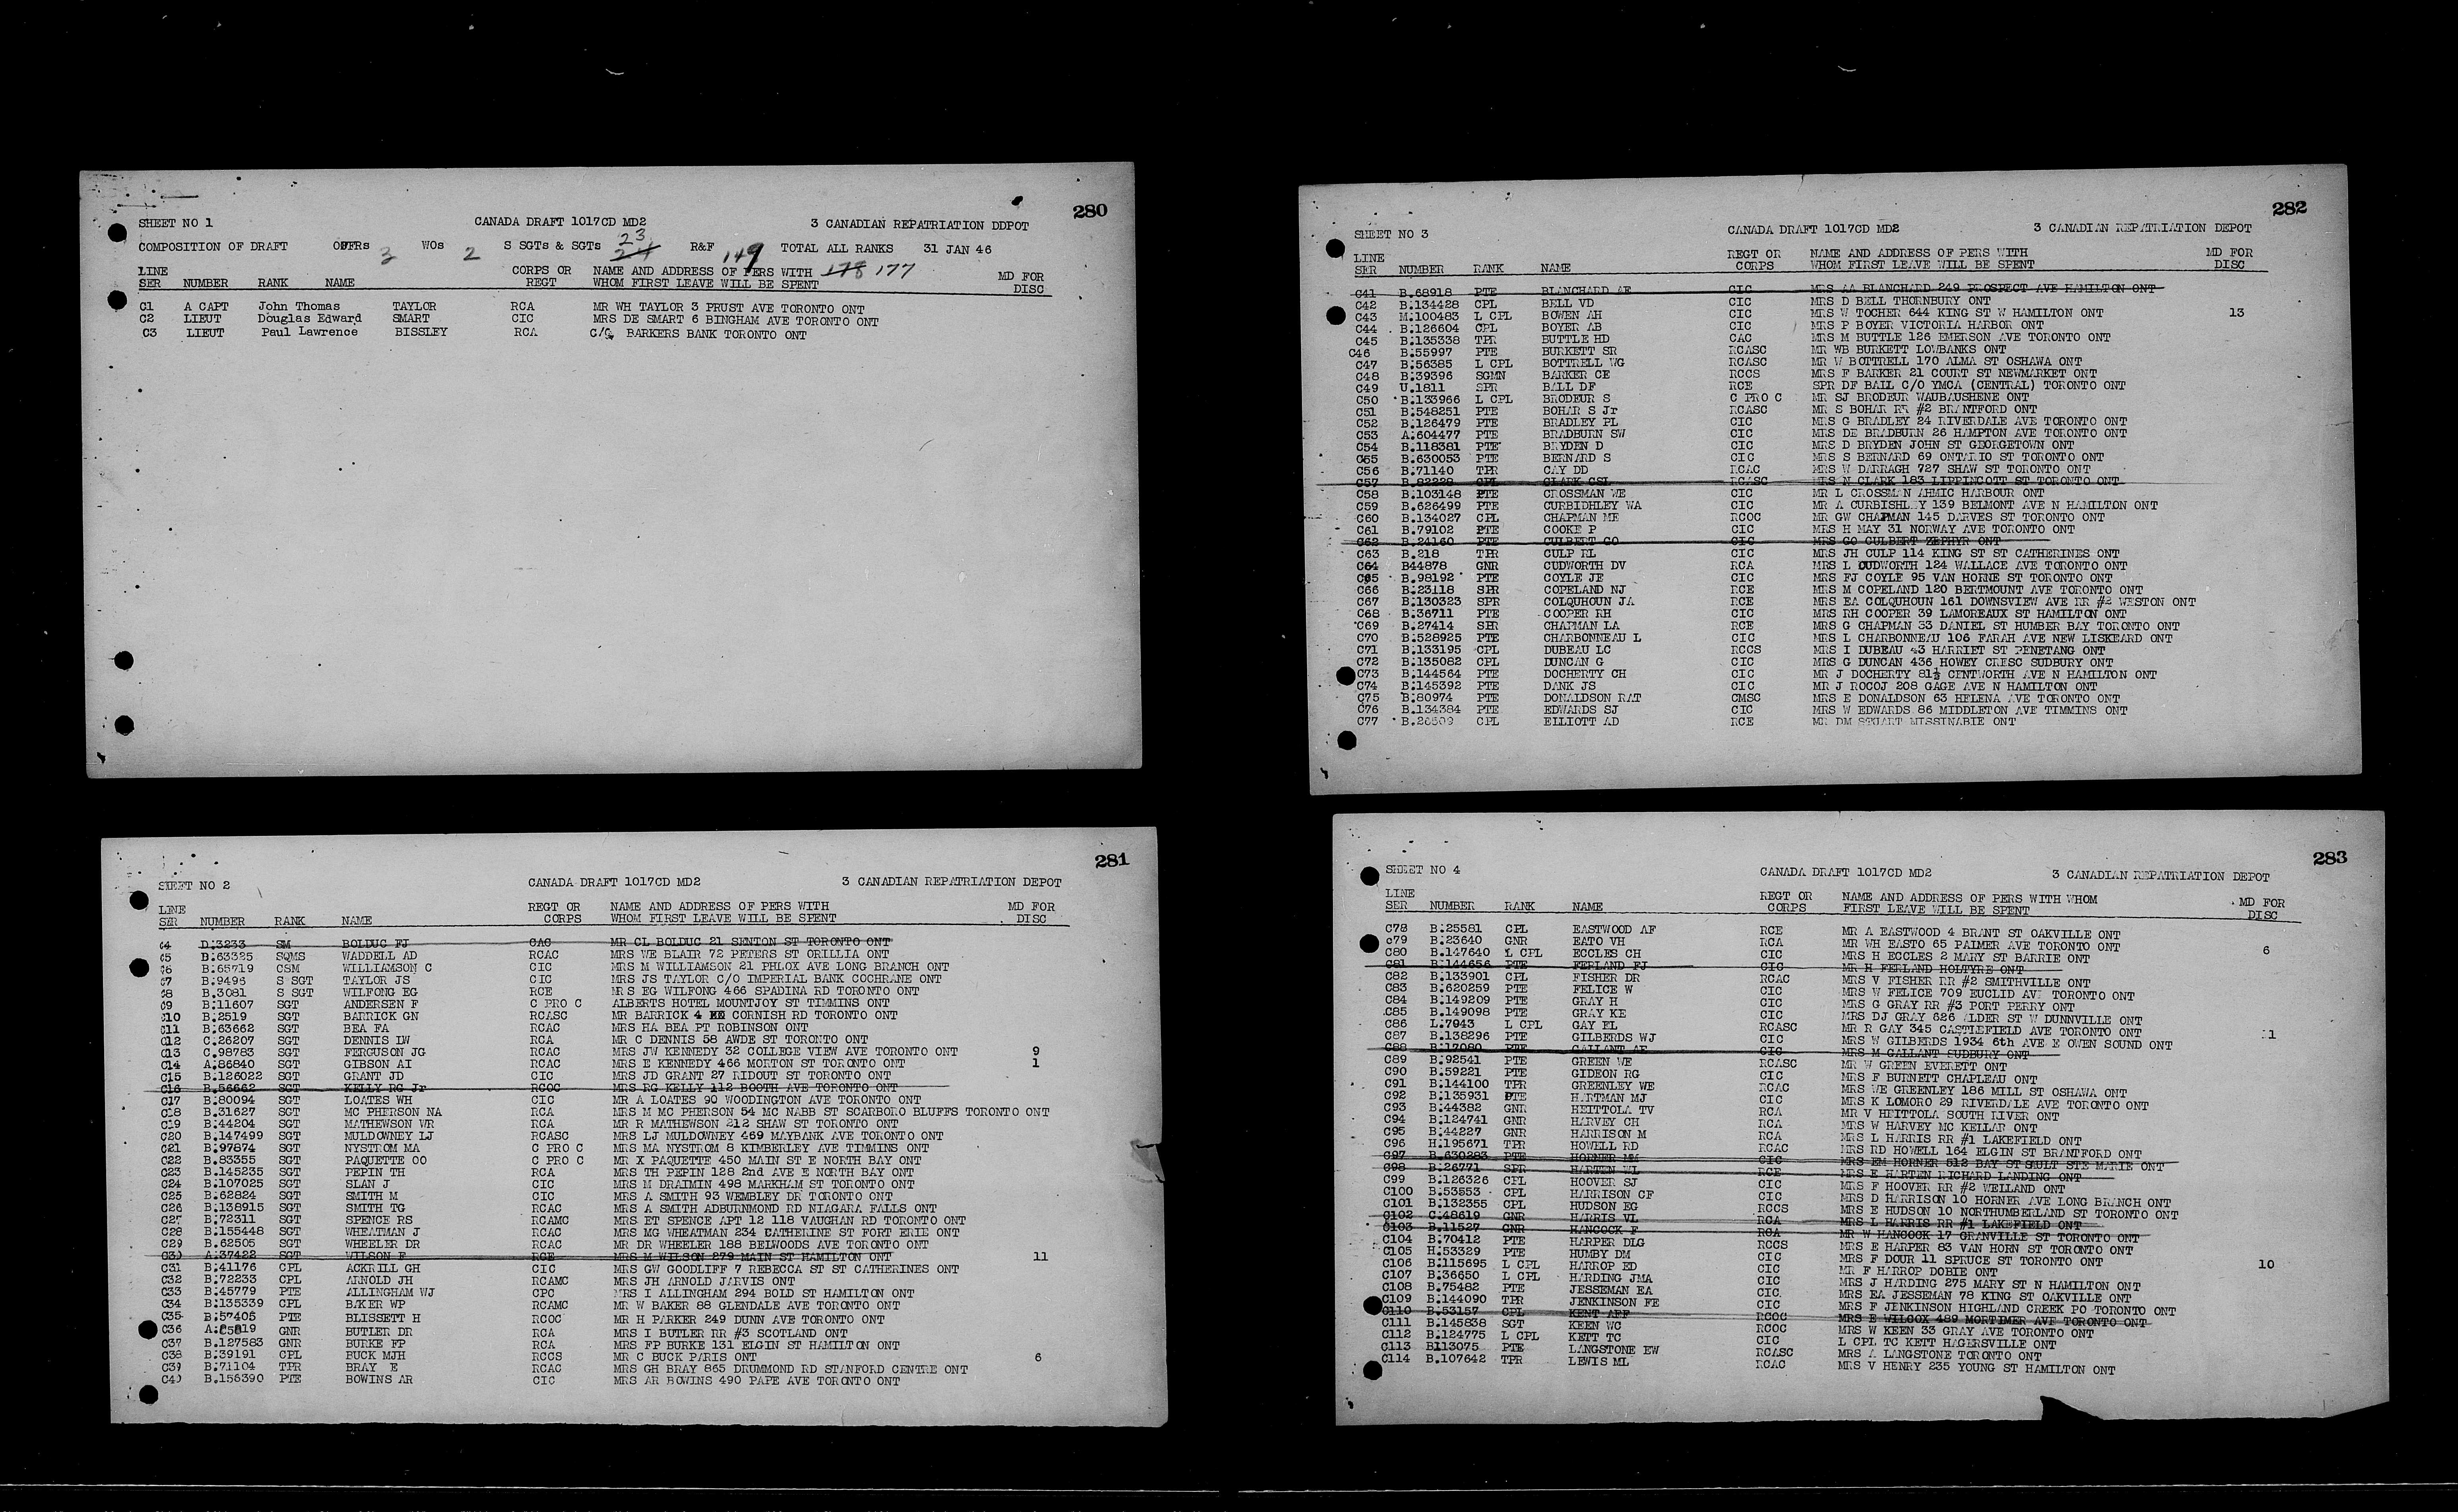 280
SHEET NO 1 CANADA DRAFT 1017CD MD2 3 CANADIAN REPATRIATION DDPOT
COMPOSITION OF DRAFT OFFRs 3 WOs 2 S SGTs & SGTs 23 24 R&F 149 TOTAL ALL RANKS 31 JAN 46
LINE CORPS OR NAME AND ADDRESS OF PERS WITH 178 177 MD FOR
SER NUMBER RANK NAME REGT WHOM FIRST LEAVE WILL BE SPENT DISC
C1 A CAPT John Thomas TAYLOR RCA MR WH TAYLOR 3 PRUST AVE TORONTO ONT
C2 LIEUT Douglas Edward SMART CIC MRS DE SMART 6 BINGHAM AVE TORONTO ONT
C3 LIEUT Paul Lawrence BISSLEY RCA C/o BARKERS BANK TORONTO ONT
281
SHEET NO 2 CANADA DRAFT 1017CD MD2 3 CANADIAN REPATRIATION DEPOT
LINE REGT OR NAME AND ADDRESS OF PERS WITH MD FOR
SER NUMBER RANK NAME CORPS WHOM FIRST LEAVE WILL BE SPENT DISC
C4 D.3233 SM BOLDUC FJ CAC MR CL BOLDUC 21 SENTON ST TORONTO ONT
C5 B.63325 SQMS WADDELL AD RCAC MRS WE BLAIR 72 PETERS ST ORILLIA ONT
C6 B.65719 CSM WILLIAMSON C CIC MRS M WILLIAMSON 21 PHLOX AVE LONG BRANCH ONT
C7 B.9496 S SGT TAYLOR JS CIC MRS JS TAYLOR C/O IMPERIAL BANK COCHRANE ONT
C8 B.3081 S SGT WILFONG EG RCE MRS EG WILFONG 466 SPADINA RD TORONTO ONT
C9 B.11607 SGT ANDERSEN F C PRO C ALBERTS HOTEL MOUNTJOY ST TIMMINS ONT
C10 B.2519 SGT BARRICK GN RCASC MR BARRICK 4 CORNISH RD TORONTO ONT
C11 B.63662 SGT BEA FA RCAC MRS HA BEA PT ROBINSON ONT
C12 C.26207 SGT DENNIS LW RCA MR C DENNIS 58 AWDE ST TORONTO ONT
C13 C.98783 SGT FERGUSON JG RCAC MRS JW KENNEDY 32 COLLEGE VIEW AVE TORONTO ONT 9
C14 A.86840 SGT GIBSON AI RCAC MRS E KENNEDY 466 MORTON ST TORONTO ONT 1
C15 B.126022 SGT GRANT JD CIC MRS JD GRANT 27 RIDOUT ST TORONTO ONT
C16 B.56662 SGT KELLY RG Jr RCOC MRS RG KELLY 112 BOOTH AVE TORONTO ONT
C17 B.80094 SGT LOATES WH CIC MR A LOATES 90 WOODINGTON AVE TORONTO ONT
C18 B.31627 SGT MC PHERSON NA RCA MRS M MC PHERSON 54 MC NABB ST SCARBORO BLUFFS TORONTO ONT
C19 B.44204 SGT MATHEWSON WR RCA MR R MATHEWSON 212 SHAW ST TORONTO ONT
C20 B.147499 SGT MULDOWNEY LJ RCASC MRS LJ MULDOWNEY 469 MAYBANK AVE TORONTO ONT
C21 B.97874 SGT NYSTROM MA C PRO C MRS MA NYSTROM 8 KIMBERLEY AVE TIMMINS ONT
C22 B.83355 SGT PAQUETTE OO C PRO C MR X PAQUETTE 450 MAIN ST E NORTH BAY ONT
C23 B.145235 SGT PEPIN TH RCA MRS TH PEPIN 128 2nd AVE E NORTH BAY ONT
C24 B.107025 SGT SLAN J CIC MRS M DRAIMIN 498 MARKHAM ST TORONTO ONT
C25 B.62824 SGT SMITH M CIC MRS A SMITH 93 WEMBLEY DR TORONTO ONT
C26 B.138915 SGT SMITH TG RCAC MRS A SMITH ADBURNMOND RD NIAGARA FALLS ONT
C27 B.72311 SGT SPENCE RS RCAMC MRS ET SPENCE APT 12 118 VAUGHAN RD TORONTO ONT
C28 B.155448 SGT WHEATMAN J RCAC MRS MG WHEATMAN 234 CATHERINE ST FORT ERIE ONT
C29 B.62505 SGT WHEELER DR RCAC MR DR WHEELER 188 BELWOODS AVE TORONTO ONT
C30 A.37422 SGT WILSON F RCE MRS M WILSON 279 MAIN ST HAMILTON ONT 11
C31 B.41176 CPL ACKRILL GH CIC MRS GW GOODLIFF 7 REBECCA ST ST CATHERINES ONT
C32 B.72233 CPL ARNOLD JH RCAMC MRS JH ARNOLD JARVIS ONT
C33 B.45779 PTE ALLINGHAM WJ CPC MRS I ALLINGHAM 294 BOLD ST HAMILTON ONT
C34 B.135339 CPL BAKER WP RCAMC MR W BAKER 88 GLENDALE AVE TORONTO ONT
C35 B.57405 PTE BLISSETT H RCOC MR H PARKER 249 DUNN AVE TORONTO ONT
C36 GNR BUTLER DR RCA MRS I BUTLER RR #3 SCOTLAND ONT
C37 B.127583 GNR BURKE FP RCA MRS FP BURKE 131 ELGIN ST HAMILTON ONT
C38 B.39191 CPL BUCK MJH RCCS MR C BUCK PARIS ONT 6
C39 B.71104 TPR BRAY E RCAC MRS GH BRAY 865 DRUMMOND RD STANFORD CENTRE ONT
C40 B.156390 PTE BOWINS AR CIC MRS AR BOWINS 490 PAPE AVE TORONTO ONT
282
SHEET NO 3 CANADA DRAFT 1017CD MD2 3 CANADIAN REPATRIATION DEPOT
LINE REGT OR NAME AND ADDRESS OF PERS WITH MD FOR
SER NUMBER RANK NAME CORPS WHOM FIRST LEAVE WILL BE SPENT DISC
C41 B.68918 PTE BLANCHARD AE CIC MRS AA BLANCHARD 249 PROSPECT AVE HAMILTON ONT
C42 B.134428 CPL BELL VD CIC MRS D BELL THORNBURY ONT
C43 M.100483 L CPL BOWEN AH CIC MRS W TOCHER 644 KING ST W HAMILTON ONT 13
C44 B.126604 CPL BOYER AB CIC MRS P BOYER VICTORIA HARBOR ONT
C45 B.135338 TPR BUTTLE HD CAC MRS M BUTTLE 126 EMERSON AVE TORONTO ONT
C46 B.55997 PTE BURKETT SR RCASC MR WB BURKETT LOWBANKS ONT
C47 B.56385 L CPL BOTTRELL WG RCASC MR W BOTTRELL 170 ALMA ST OSHAWA ONT
C48 B.39396 SGMN BARKER CE RCCS MRS F BARKER 21 COURT ST NEWMARKET ONT
C49 U.1811 SPR BALL DF RCE SPR DF BALL C/O YMCA (CENTRAL) TORONTO ONT
C50 B.133966 L CPL BRODEUR S C PRO C MR SJ BRODEUR WAUBAUSHENE ONT
C51 B.548251 PTE BOHAR S Jr RCASC MR S BOHAR RR #2 BRANTFORD ONT
C52 B.126479 PTE BRADLEY PL CIC MRS G BRADLEY 24 RIVERDALE AVE TORONTO ONT
C53 A.604477 PTE BRADBURN SW CIC MRS DE BRADBURN 26 HAMPTON AVE TORONTO ONT
C54 B.118381 PTE BRYDEN D CIC MRS D BRYDEN JOHN ST GEORGETOWN ONT
C55 B.630053 PTE BERNARD S CIC MRS S BERNARD 69 ONTARIO ST TORONTO ONT
C56 B.71140 TPR CAY DD RCAC MRS W DARRAGH 727 SHAW ST TORONTO ONT
C57 B.82228 CPL CLARK CSL RCASC MRS N CLARK 183 LIPPINCOTT ST TORONTO ONT
C58 B.103148 PTE CROSSMAN WE CIC MR L CROSSMAN AHMIC HARBOUR ONT
C59 B.626499 PTE CURBIDHLEY WA CIC MR A CURBISHLEY 139 BELMONT AVE N HAMILTON ONT
C60 B.134027 CPL CHAPMAN ME RCOC MR GW CHAPMAN 145 DARVES ST TORONTO ONT
C61 B.79102 PTE COOKE P CIC MRS H MAY 31 NORWAY AVE TORONTO ONT
C62 B.24160 PTE CULBERT GO CIC MRS GO CULBERT ZEPHYR ONT
C63 B.218 TPR CULP RL CIC MRS JH CULP 114 KING ST ST CATHERINES ONT
C64 B44878 GNR CUDWORTH DV RCA MRS L CUDWORTH 124 WALLACE AVE TORONTO ONT
C65 B.98192 PTE COYLE JE CIC MRS FJ COYLE 95 VAN HORNE ST TORONTO ONT
C66 B.23118 SPR COPELAND NJ RCE MRS M COPELAND 120 BERTMOUNT AVE TORONTO ONT
C67 B.130323 SPR COLQUHOUN JA RCE MRS EA COLQUHOUN 161 DOWNSVIEW AVE RR #2 WESTON ONT
C68 B.36711 PTE COOPER RH CIC MRS RH COOPER 39 LAMOREAUX ST HAMILTON ONT
C69 B.27414 SPR CHAPMAN LA RCE MRS G CHAPMAN 33 DANIEL ST HUMBER BAY TORONTO ONT
C70 B.528925 PTE CHARBONNEAU L CIC MRS L CHARBONNEAU 106 FARAH AVE NEW LISKEARD ONT
C71 B.133195 CPL DUBEAU LC RCCS MRS I DUBEAU 43 HARRIET ST PENETANG ONT
C72 B.135082 CPL DUNCAN G CIC MRS G DUNCAN 436 HOWEY CRESC SUDBURY ONT
C73 B.144564 PTE DOCHERTY CH CIC MR J DOCHERTY 81½ CENTWORTH AVE N HAMILTON ONT
C74 B.145392 PTE DANK JS CIC MR J ROCOJ 208 GAGE AVE N HAMILTON ONT
C75 B.80974 PTE DONALDSON RAT CMSC MRS E DONALDSON 63 HELENA AVE TORONTO ONT
C76 B.134384 PTE EDWARDS SJ CIC MRS W EDWARDS 86 MIDDLETON AVE TIMMINS ONT
C77 B.26509 CPL ELLIOTT AD RCE MR DM STUART MISSINABIE ONT
283
SHEET NO 4 CANADA DRAFT 1017CD MD2 3 CANADIAN REPATRIATION DEPOT
LINE REGT OR NAME AND ADDRESS OF PERS WITH WHOM MD FOR
SER NUMBER RANK NAME CORPS FIRST LEAVE WILL BE SPENT DISC
C78 B.25581 CPL EASTWOOD AF RCE MR A EASTWOOD 4 BRANT ST OAKVILLE ONT
C79 B.23640 GNR EATO VH RCA MR WH EASTO 65 PALMER AVE TORONTO ONT 6
C80 B.147640 L CPL ECCLES CH CIC MRS H ECCLES 2 MARY ST BARRIE ONT
C81 B.144656 PTE FERLAND FJ CIC MR H FERLAND HOLTYRE ONT
C82 B.133901 CPL FISHER DR RCAC MRS V FISHER RR #2 SMITHVILLE ONT
C83 B.620259 PTE FELICE W CIC MRS W FELICE 709 EUCLID AVE TORONTO ONT
C84 B.149209 PTE GRAY H CIC MRS G GRAY RR #3 PORT PERRY ONT
C85 B.149098 PTE GRAY KE CIC MRS DJ GRAY 626 ALDER ST W DUNNVILLE ONT
C86 L.7943 L CPL GAY EL RCASC MR R GAY 345 CASTLEFIELD AVE TORONTO ONT 11
C87 B.138296 PTE GILBERDS WJ CIC MRS W GILBERDS 1934 6th AVE E OWEN SOUND ONT
C88 B.17080 PTE GALLANT AE CIC MRS M GALLANT SUDBURY ONT
C89 B.92541 PTE GREEN WE RCASC MR W GREEN EVERETT ONT
C90 B.59221 PTE GIDEON RG CIC MRS F BURNETT CHAPLEAU ONT
C91 B.144100 TPR GREENLEY WE RCAC MRS WE GREENLEY 186 MILL ST OSHAWA ONT
C92 B.135931 PTE HARTMAN MJ CIC MRS K LOMORO 29 RIVERDALE AVE TORONTO ONT
C93 B.44382 GNR HEITTOLA TV RCA MR V HEITTOLA SOUTH RIVER ONT
C94 B.124741 GNR HARVEY CH RCA MRS W HARVEY MC KELLAR ONT
C95 B.44227 GNR HARRISON M RCA MRS L HARRIS RR #1 LAKEFIELD ONT
C96 H.195671 TPR HOWELL RD RCAC MRS RD HOWELL 164 ELGIN ST BRANTFORD ONT
C97 B.630283 PTE HORNER MM CIC MRS EM HORNER 512 BAY ST SAULT STE MARIE ONT
C98 B.26771 SPR HARTEN WL RCE MRS E HARTEN RICHARD LANDING ONT
C99 B.126326 CPL HOOVER SJ CIC MRS F HOOVER RR #2 WELLAND ONT
C100 B.53553 CPL HARRISON CF CIC MRS D HARRISON 10 HORNER AVE LONG BRANCH ONT
C101 B.132355 CPL HUDSON EG RCCS MRS E HUDSON 10 NORTHUMBERLAND ST TORONTO ONT
C102 C.48619 GNR HARRIS VL RCA MRS L HARRIS RR #1 LAKEFIELD ONT
C103 B.11527 GNR HANCOCK F RCA MR W HANCOCK 17 GRANVILLE ST TORONTO ONT
C104 B.70412 PTE HARPER DLG RCCS MRS E HARPER 83 VAN HORN ST TORONTO ONT
C105 H.53329 PTE HUMBY DM CIC MRS F DOUR 11 SPRUCE ST TORONTO ONT 10
C106 B.115695 L CPL HARROP ED CIC MR F HARROP DOBIE ONT
C107 B.36650 L CPL HARDING JMA CIC MRS J HARDING 275 MARY ST N HAMILTON ONT
C108 B.75482 PTE JESSEMAN EA CIC MRS EA JESSEMAN 78 KING ST OAKVILLE ONT
C109 B.144090 TPR JENKINSON FE CIC MRS F JENKINSON HIGHLAND CREEK PO TORONTO ONT
C110 B.53157 CPL KENT AFF RCOC MRS E WILCOX 489 MORTIMER AVE TORONTO ONT
C111 B.145838 SGT KEEN WC RCOC MRS W KEEN 33 GRAY AVE TORONTO ONT
C112 B.124775 L CPL KETT TC CIC L CPL TC KETT HAGERSVILLE ONT
C113 B113075 PTE LANGSTONE EW RCASC MRS A LANGSTONE TORONTO ONT
C114 B.107642 TPR LEWIS ML RCAC MRS V HENRY 235 YOUNG ST HAMILTON ONT